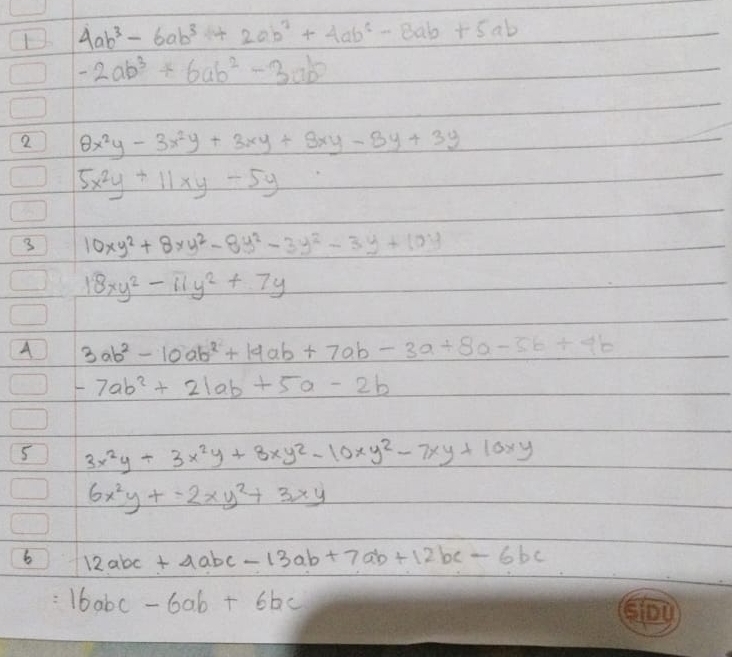 1 4ab³ - 6ab³ + 2ab² + 4ab² - 8ab + 5ab
-2ab³ + 6ab² - 3ab
2 8x²y - 3x²y + 3xy + 8xy - 8y + 3y
5x²y + 11xy - 5y
3 10xy² + 8xy² - 8y² - 3y² - 3y + 10y
18xy² - 11y² + 7y
4 3ab² - 10ab² + 14ab + 7ab - 3a + 8a - 5b + 4b
- 7ab² + 21ab + 5a - 2b
5 3x²y + 3x²y + 8xy² - 10xy² - 7xy + 10xy
6x²y + -2xy² + 3xy
6 12abc + 4abc - 13ab + 7ab + 12bc - 6bc
= 16abc - 6ab + 6bc
SIDU